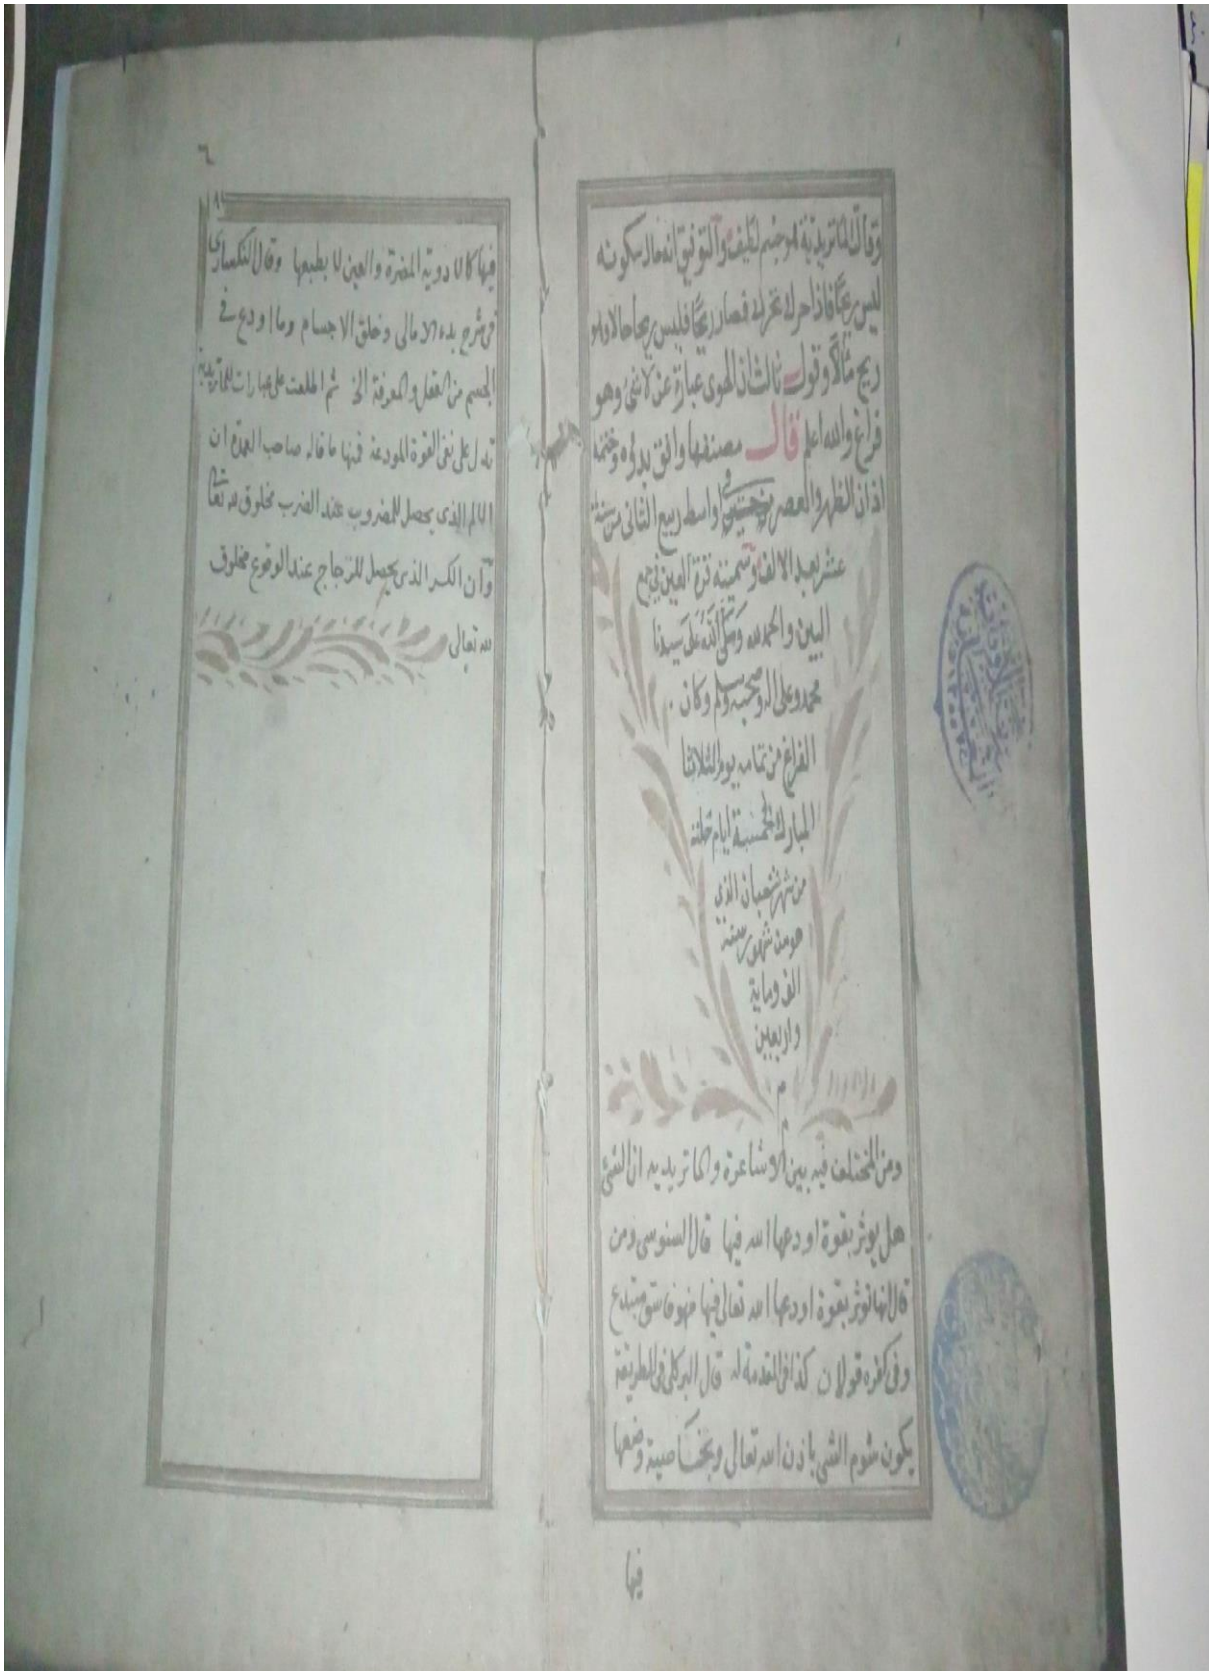 وقالت الماتريدية هو جسم لطيف والتوفيق انه حال سكونه
ليس ريحا فاذا حرك تحرك فصار ريحا فليس ريحا حالا وهو
ريح مآلا وقول ثالث ان الهوى عبارة عن لا شئ وهو
فراغ والله اعلم قال مصنفها وافق بدؤه وختمه
اذان الظهر والعصر في اواسط ربيع الثاني من سنة
عشر بعد الالف وسميته قرة العين في جمع
البين والحمد لله وصلى الله على سيدنا
محمد وعلى اله وصحبه وسلم وكان
الفراغ من تمامه يوم الثلاثا
المبارك لخمسة ايام خلت
من شهر شعبان الذي
هو من شهور سنة
الف وماية
واربعين
م
ومن المختلف فيه بين الاشاعرة والماتريديه ان الشئ
هل يوثر بقوة اودعها الله فيها قال السنوسى ومن
قال انها توثر بقوة اودعها الله تعالى فيها فهو فاسق مبتدع
وفى كفره قولان كذا فى المقدمة له قال البركلى فى الطريقة
يكون شوم الشئ باذن الله تعالى وبخاصية وضعها
فيها
٦
فيها كالادوية المضرة والعين لا بطبعها وقال النكسارى
فى شرح بدء الامالى وخلق الاجسام وما اودع فى
الجسم من العقل والمعرفة الخ ثم اطلعت على عبارات للماتريدية
تدل على نفى القوة المودعة فيها ما قاله صاحب العمدة ان
الالم الذى يحصل للمضروب عند الضرب مخلوق لله تعالى
وان الكسر الذى يحصل للزجاج عند الوقوع مخلوق
لله تعالى